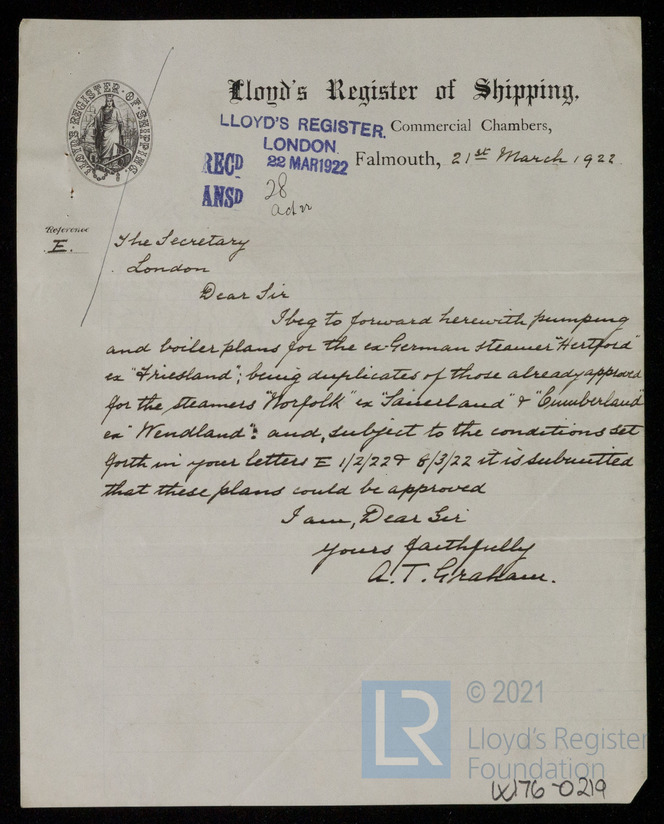 LLOYD'S REGISTER OF SHIPPING.
Lloyd's Register of Shipping,
LLOYD'S REGISTER.
LONDON.
Commercial Chambers,
RECD 22 MAR 1922
Falmouth, 21st March 1922
ANSD 28
Reference
E.
The Secretary
London
Dear Sir
I beg to forward herewith pumping
and boiler plans for the ex-German steamer "Hertford"
ex "Friesland"; being duplicates of those already approved
for the steamers "Norfolk" ex "Sauerland" & "Cumberland"
ex "Wendland": and, subject to the conditions set
forth in your letters E 1/2/22 & 8/3/22 it is submitted
that these plans could be approved
I am, Dear Sir
Yours faithfully
A. T. Graham.
LR © 2021
Lloyd's Register
Foundation
W176-0219